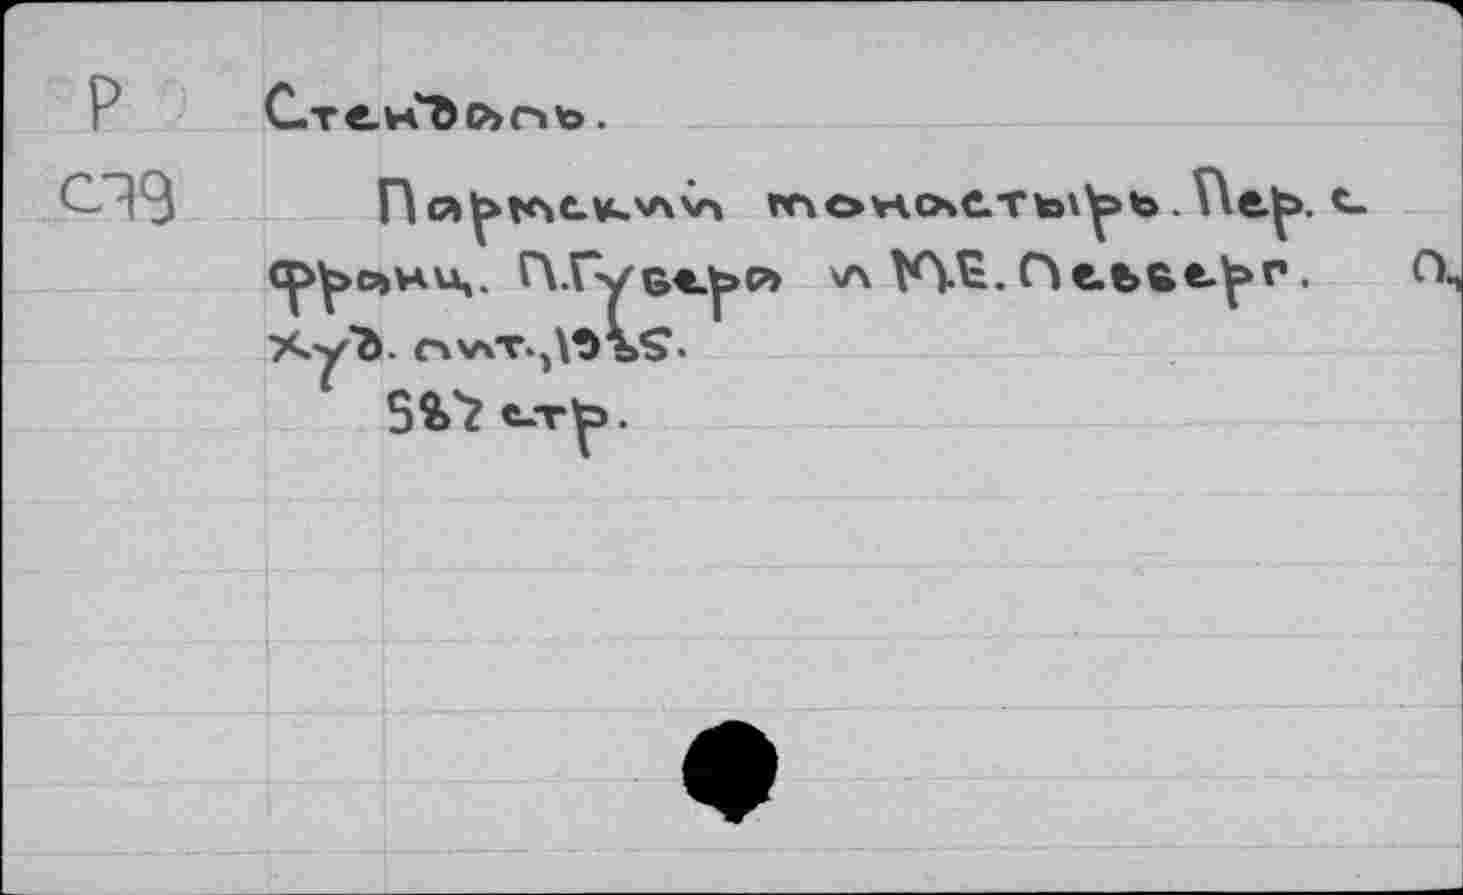 Р Стендаль.
С79 Пармский монастырь. Пер. с
франц. П.Губера и М.Е.Левберг. Л,
Худ. лит., 1935.
582 стр.